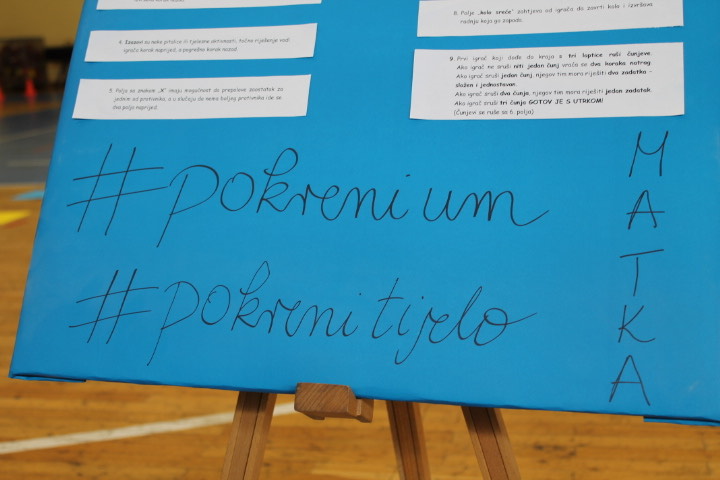 4. Izazovi su neke pitalice ili tjelesne aktivnosti, točno riješenje vodi
igrača korak naprijed, a pogrešno korak nazad.
5. Polje sa znakom „Ж" imaju mogućnost da preposlove zaostatak za
jednim od protivnika, a u slučaju da nema boljeg protivnika ide se
dva polja naprijed.
8. Polje „kolo sreće" zahtijeva od igrača da zavrti kolo i izvršava
radnju koja ga zapada.
9. Prvi igrač koji dođe do kraja s tri loptice ruši čunjeve
Ako igrač ne sruši niti jedan čunj vraća se dva koraka natrag
Ako igrač sruši jedan čunj, njegov tim mora riješiti dva zadatka -
složen i jednostavan.
Ako igrač sruši dva čunja, njegov tim mora riješiti jedan zadatak.
Ako igrač sruši tri čunja GOTOV JE S UTRKOM!
(Čunjevi se ruše sa 6. polja)
#pokreni um
#pokreni tijelo
M
A
T
K
A